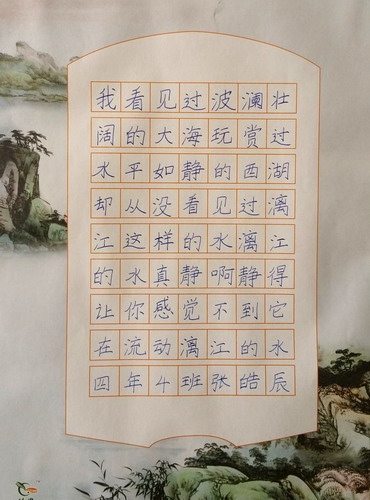 我看见过波澜壮
阔的大海玩赏过
水平如静的西湖
却从没看见过漓
江这样的水漓江
的水真静啊静得
让你感觉不到它
在流动漓江的水
四年4班张皓辰